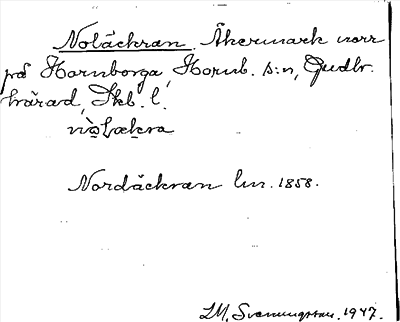 Noläckran. Åkermark norr
på Hornborga, Hornb. s:n, Gudh.
härad, Skb. l.
Nordäckran lm. 1858.
LM. Svenungsson. 1947.